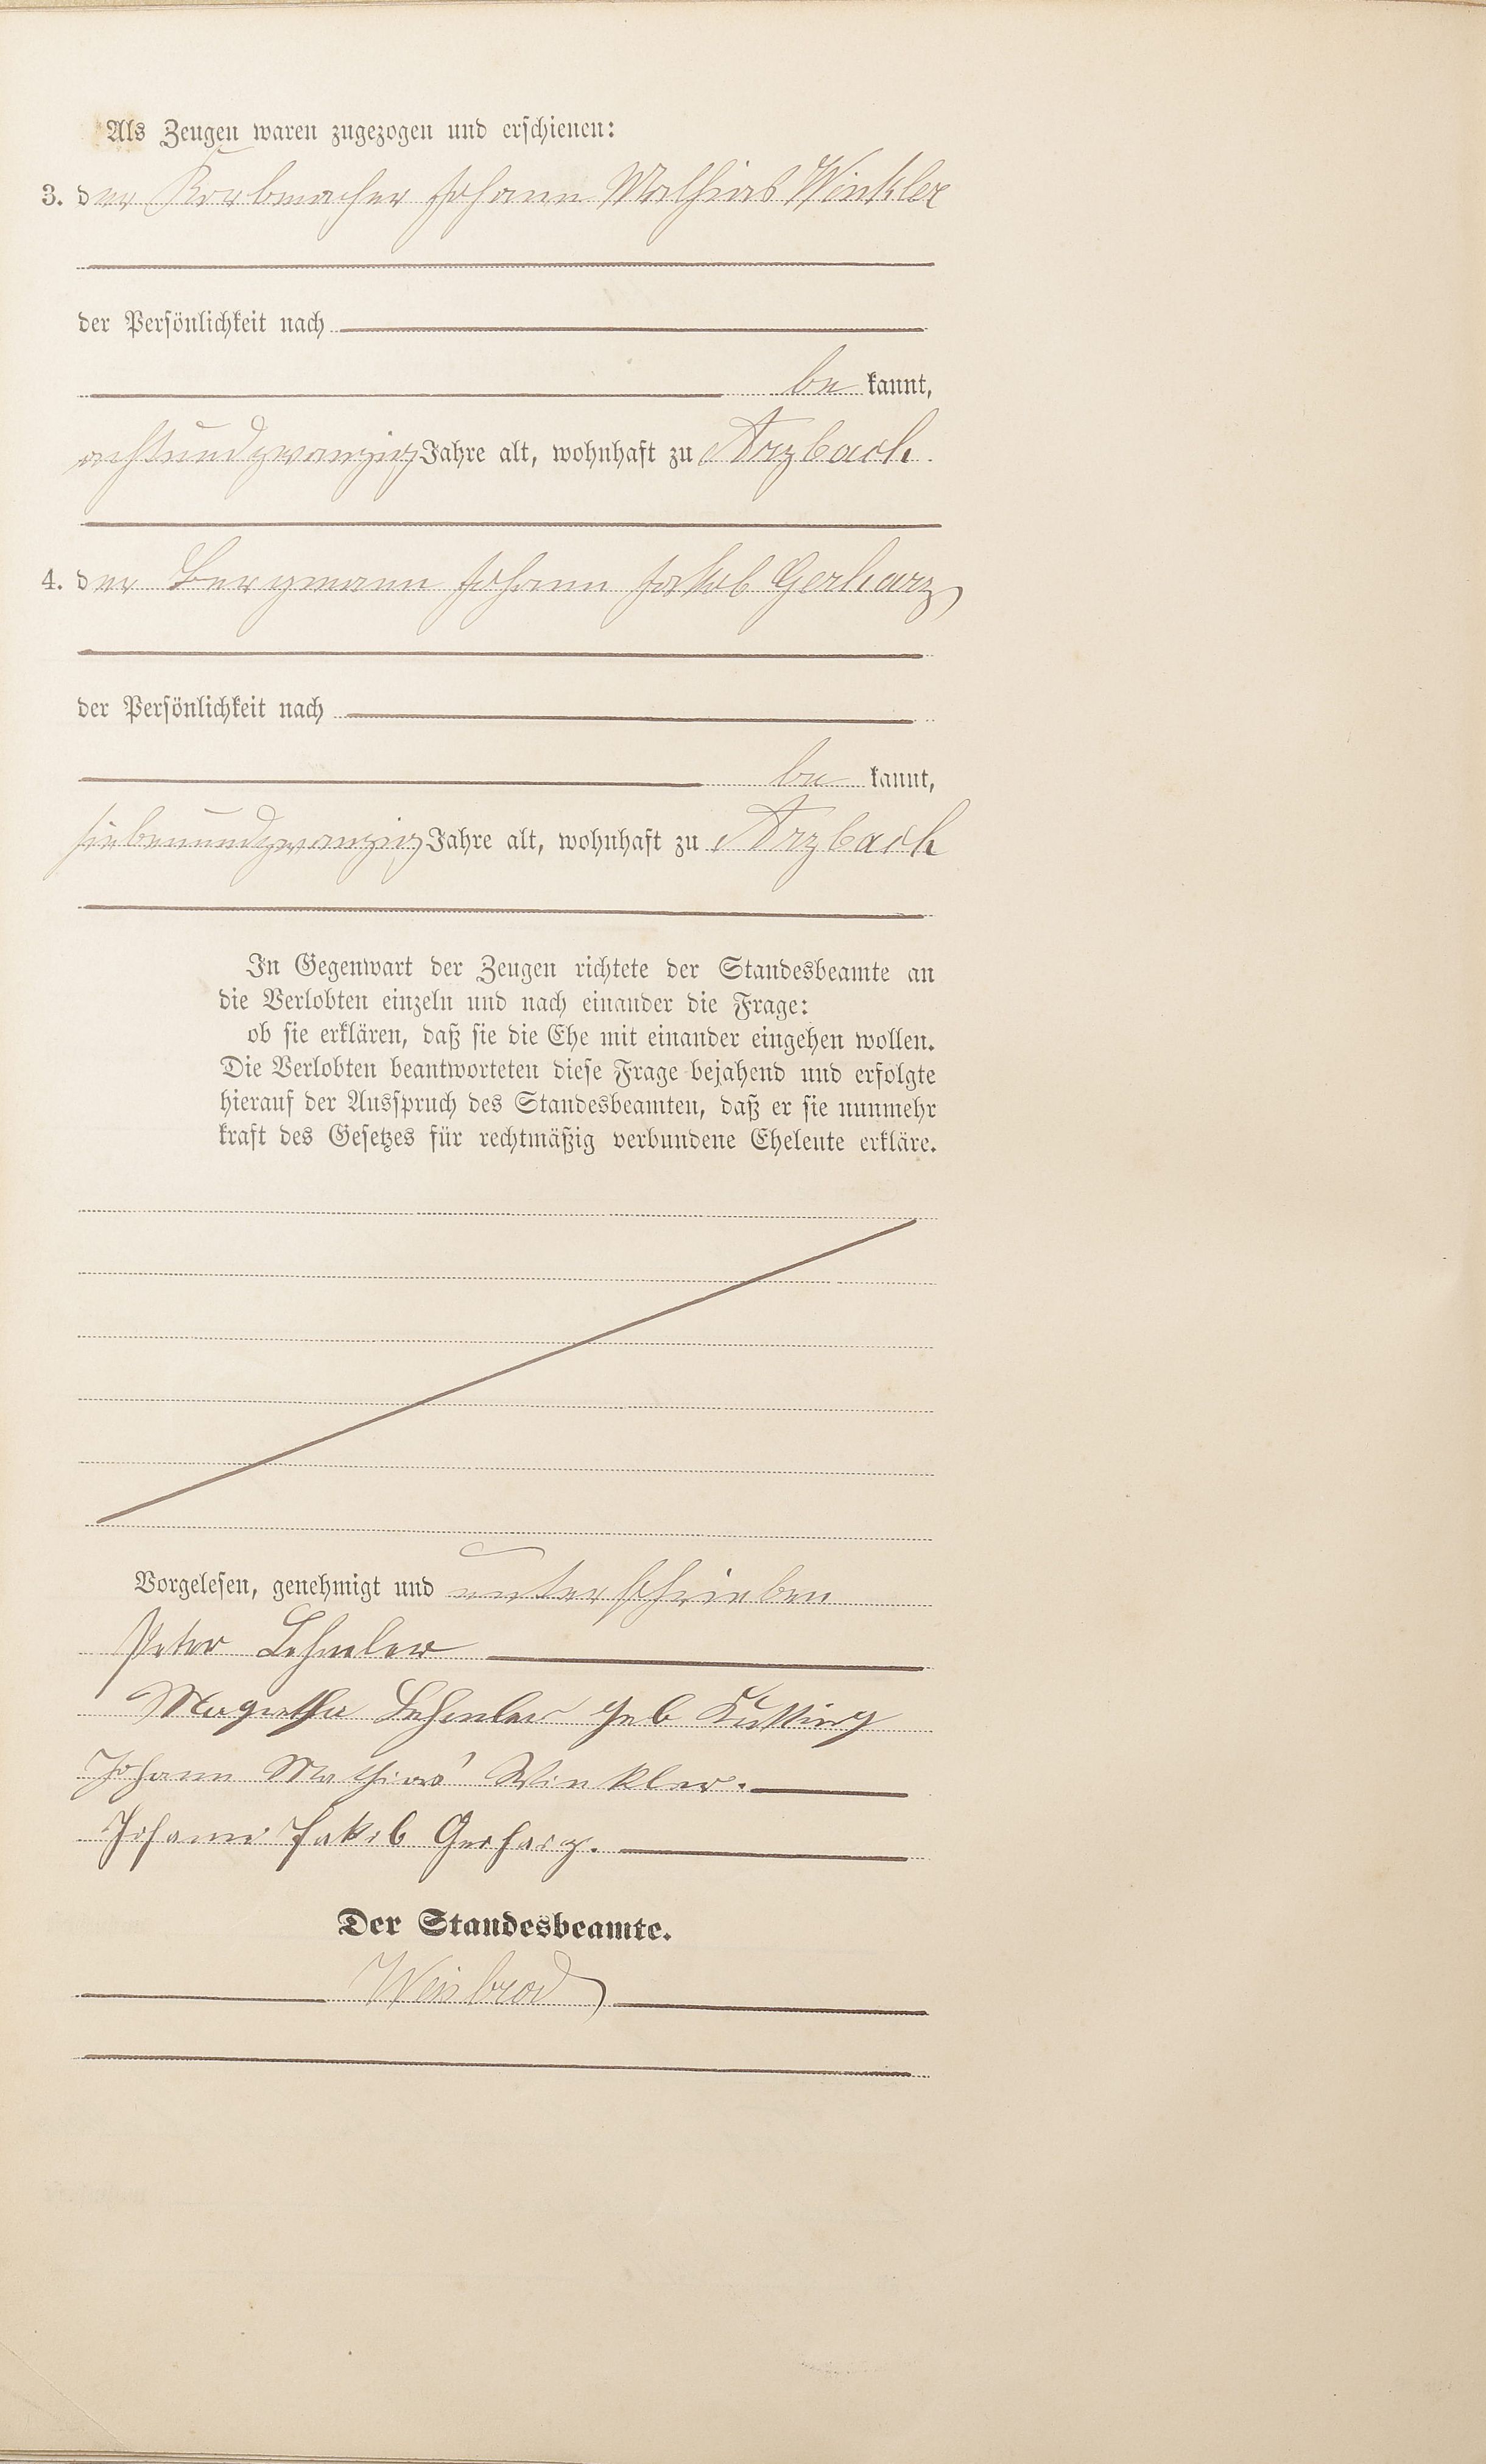 Als Zeugen waren zugezogen und erschienen:
3. der Korbmacher Johann Mathias Winkler
der Persönlichkeit nach
be kannt,
achtundzwanzig Jahre alt, wohnhaft zu Arzbach
4. der Bergmann Johann Jakob Gerharz
der Persönlichkeit nach
be kannt,
siebenundzwanzig Jahre alt, wohnhaft zu Arzbach
In Gegenwart der Zeugen richtete der Standesbeamte an
die Verlobten einzeln und nach einander die Frage:
ob sie erklären, daß sie die Ehe mit einander eingehen wollen.
Die Verlobten beantworteten diese Frage bejahend und erfolgte
hierauf der Ausspruch des Standesbeamten, daß er sie nunmehr
kraft des Gesetzes für rechtmäßig verbundene Eheleute erkläre.
Vorgelesen, genehmigt und unterschrieben
Peter
geb
Johann Mathias Winkler.
Johann Jakob Gerharz.
Der Standesbeamte.
Weisbrod